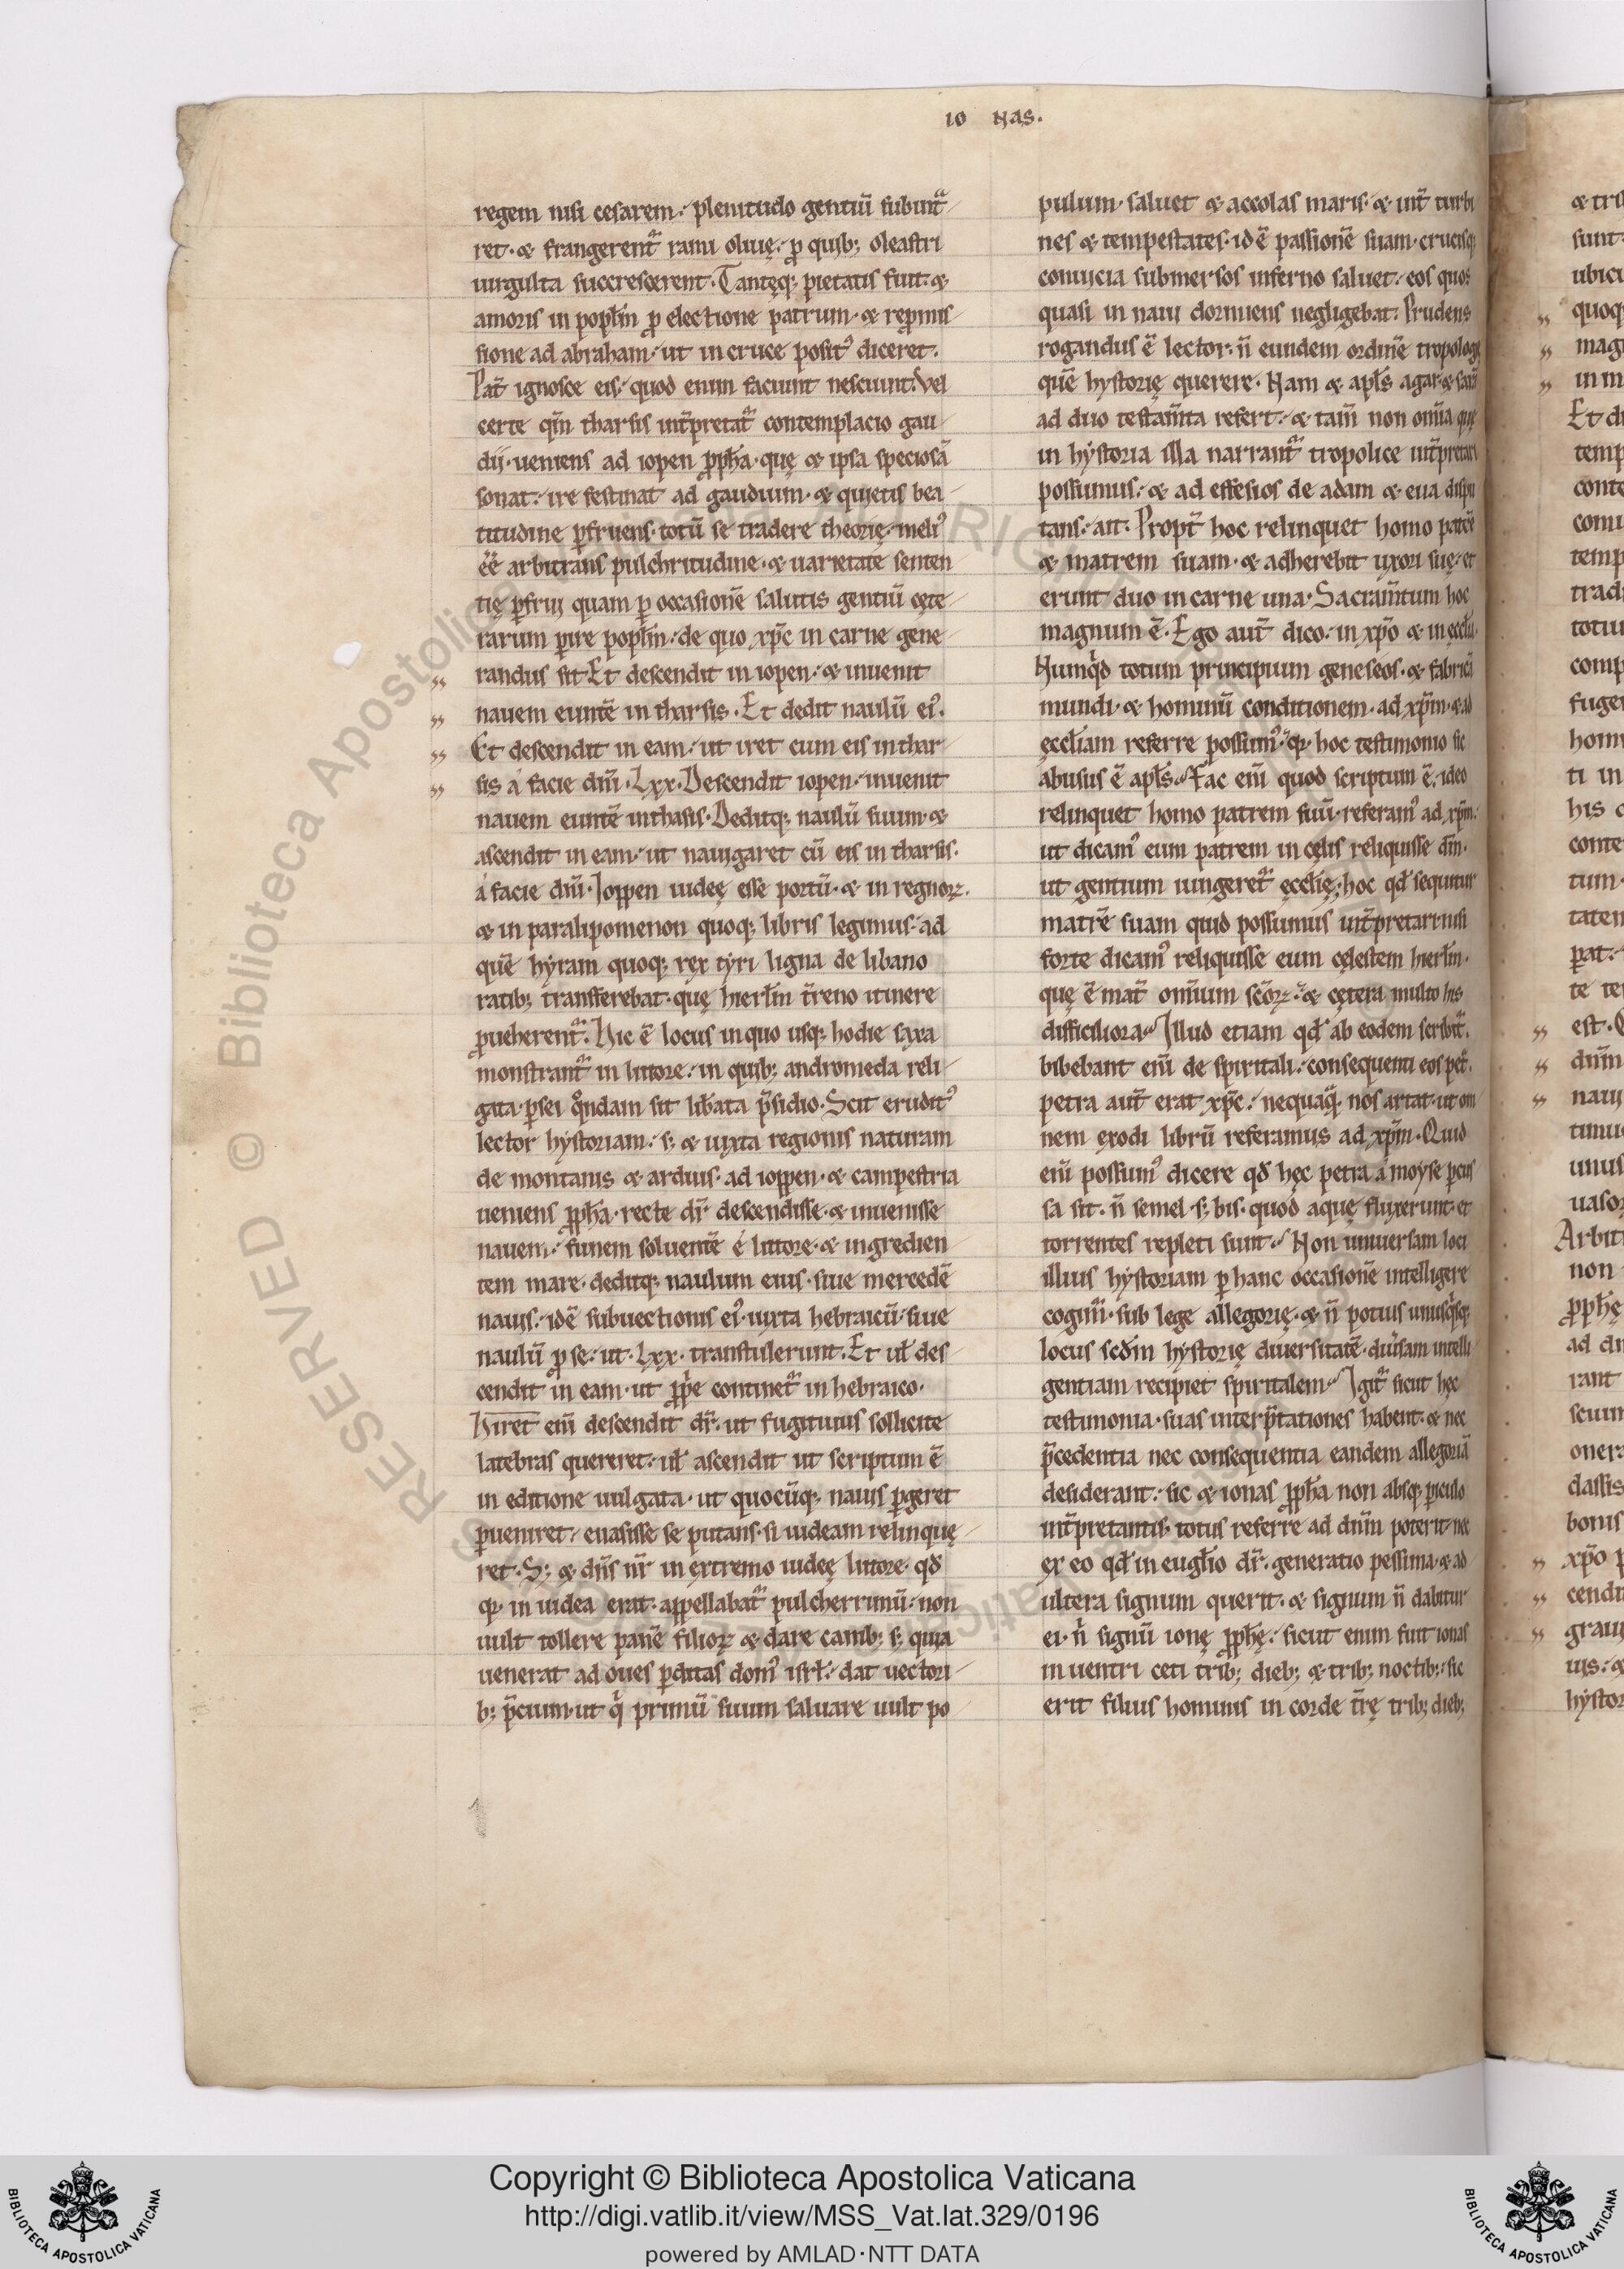 IO NAS.
regem nisi cesarem: plenitudo gentiũ subint᷑
ret. & frangerent᷑ rami oliuę: ꝓ quib; oleastri
uirgulta succrescerent. Tantęq; pietatis fuit. &
amoris in popl̃m ꝓ electione patrum. & repmis
sione ad abraham: ut in cruce posit᾽ diceret.
Pat̃ ignosce eis: quod enim faciunt nesciunt. Vel
certe qm̃ tharsis int̃pretat᷑ contemplacio gau
dij. ueniens ad iopen ꝓph̃a. quę & ipsa speciosã
sonat: ire festinat ad gaudium. & quietis bea
titudine ꝑfruens. totũ se tradere theorię. meli᾽
ẽẽ arbitrans pulchritudine. & uarietate senten
tię ꝑfrui quam ꝑ occasionẽ salutis gentiũ cęte
rarum ꝑire popl̃m: de quo xp̃c in carne gene
randus sit. Et descendit in iopen: & inuenit
nauem euntẽ in tharsis. Et dedit naulũ ei᾽.
Et descendit in eam: ut iret cum eis in thar
sis á facie dñi. Lxx. Descendit iopen. inuenit
nauem euntẽ in thasis. Deditq; naulũ suum. &
ascendit in eam: ut nauigaret cũ eis in tharsis.
á facie dñi. Ioppen iudeę esse portũ. & in regnoꝝ.
& in paralipomenon quoq; libris legimus. ad
quẽ hyram quoq; rex tyri ligna de libano
ratib; transferebat. quę hierl̃m t̃reno itinere
ꝓueherent᷑. Hic ẽ locus in quo usq; hodie saxa
monstrant᷑ in littore: in quib; andromeda reli
gata. persei qͦndam sit lib̃ata p̃sidio. Scit erudit᾽
lector hystoriam: s; & iuxta regionis naturam
de montanis & arduis. ad ioppen. & campestria
ueniens ꝓph̃a. recte dr̃ descendisse. & inuenisse
nauem: funem soluentẽ é littore. & ingredien
tem mare. deditq; naulum eius. siue mercedẽ
nauis: idẽ subuectionis ei᾽. iuxta hebraicũ. siue
naulũ ꝓ se: ut. Lxx. transtulerunt. Et ul̃ des
cendit in eam. ut ꝓp̃e continet᷑ in hebraico.
Hiret eni᷑ descendit dr̃. ut fugitiuus sollicite
latebras quereret: ul̃ ascendit ut scriptum ẽ
in editione uulgata. ut quocũq; nauis ꝑgeret
ꝑueniret. euasisse se putans. si iudeam relinquę
ret. S; & dñs nr̃ in extremo iudeę littore. qđ
q; in iudea erat. appellabat᷑ pulcherrimũ: non
uult tollere panẽ filioꝝ & dare canib; s; quia
uenerat ad oues ꝑditas dom᾽ isrl̃: dat uectori
b; p̃cium. ut qͥ primũ suum saluare uult po
pulum. saluet & accolas maris. & int̃ turbi
nes & tempestates. idẽ passionẽ suam. crucisq;
conuicia submersos inferno saluet: eos quos
quasi in naui dormiens negligebat: Prudens
rogandus ẽ lector. ñ eundem ordinẽ tropolog
quẽ hystorię querere. Nam & apl̃s agar. & saram
ad duo testam̃ta refert: & tam̃ non om̃ia quę
in hystoria illa narrant᷑ tropolice int̃pretari
possumus: & ad effesios de adam & eua dispu
tans: ait. Propt̃ hoc relinquet homo patrẽ
& matrem suam. & adherebit uxori suę. et
erunt duo in carne una. Sacram̃tum hoc
magnum ẽ. Ego aut̃ dico: in xp̃o & in ęccl̃ia.
Numqͥd totum principium geneseos. & fabricã
mundi. & hominũ conditionem. ad xp̃m. & ad
ęccl̃iam referre possum᾽. q; hoc testimonio sic
abusus ẽ apl̃s. Fac eni᷑ quod scriptum ẽ. ideo
relinquet homo patrem suũ. referam᾽ ad xp̃m:
ut dicam᾽ eum patrem in cęlis reliquisse dm̃.
ut gentium iungeret᷑ ęccl̃ię. hoc qđ sequitur
matrẽ suam quid possumus int̃pretari nisi
forte dicam᾽ reliquisse eum cęlestem hierl̃m.
quę ẽ mat̃ om̃ium sc̃oꝝ. & cętera multo his
difficiliora. Illud etiam qđ ab eodem scribit᷑.
bibebant eni᷑ de spiritali: consequenti eos pet̃.
petra aut̃ erat xp̃c: nequaq̃. nos artat. ut om
nem exodi librũ referamus ad xp̃m. Quid
eni᷑ possum᾽ dicere qđ hęc petra á moyse ꝑcus
sa sit. ñ semel. s; bis. quod aquę fluxerunt. et
torrentes repleti sunt. Non uniuersam loci
illius hystoriam ꝑ hanc occasionẽ intelligere
cogim̃. sub lege allegorię. & ñ potius unusqͥsq;
locus scđm hystorię diuersitatẽ. diũsam intelli
gentiam recipiet spiritalem. Igit᷑ sicut hęc
testimonia. suas interp̃tationes habent. & nec
p̃cedentia nec consequentia eandem allegoriã
desiderant: sic & ionas ꝓph̃a non absq; piculo
int̃pretantis. totus referre ad dnm̃ poterit. nec
ex eo qđ in euugl̃io dr̃. generatio pessima. & ad
ultera signum querit. & signum ñ dabitur
ei. ñ signũ ionę ꝓph̃ę: sicut enim fuit ionas
in uentri ceti trib; dieb; & trib; noctib;: sic
erit filius hominis in corde t̃rę trib; dieb;
Copyright © Biblioteca Apostolica Vaticana
http://digi.vatlib.it/view/MSS_Vat.lat.329/0196
powered by AMLAD·NTT DATA